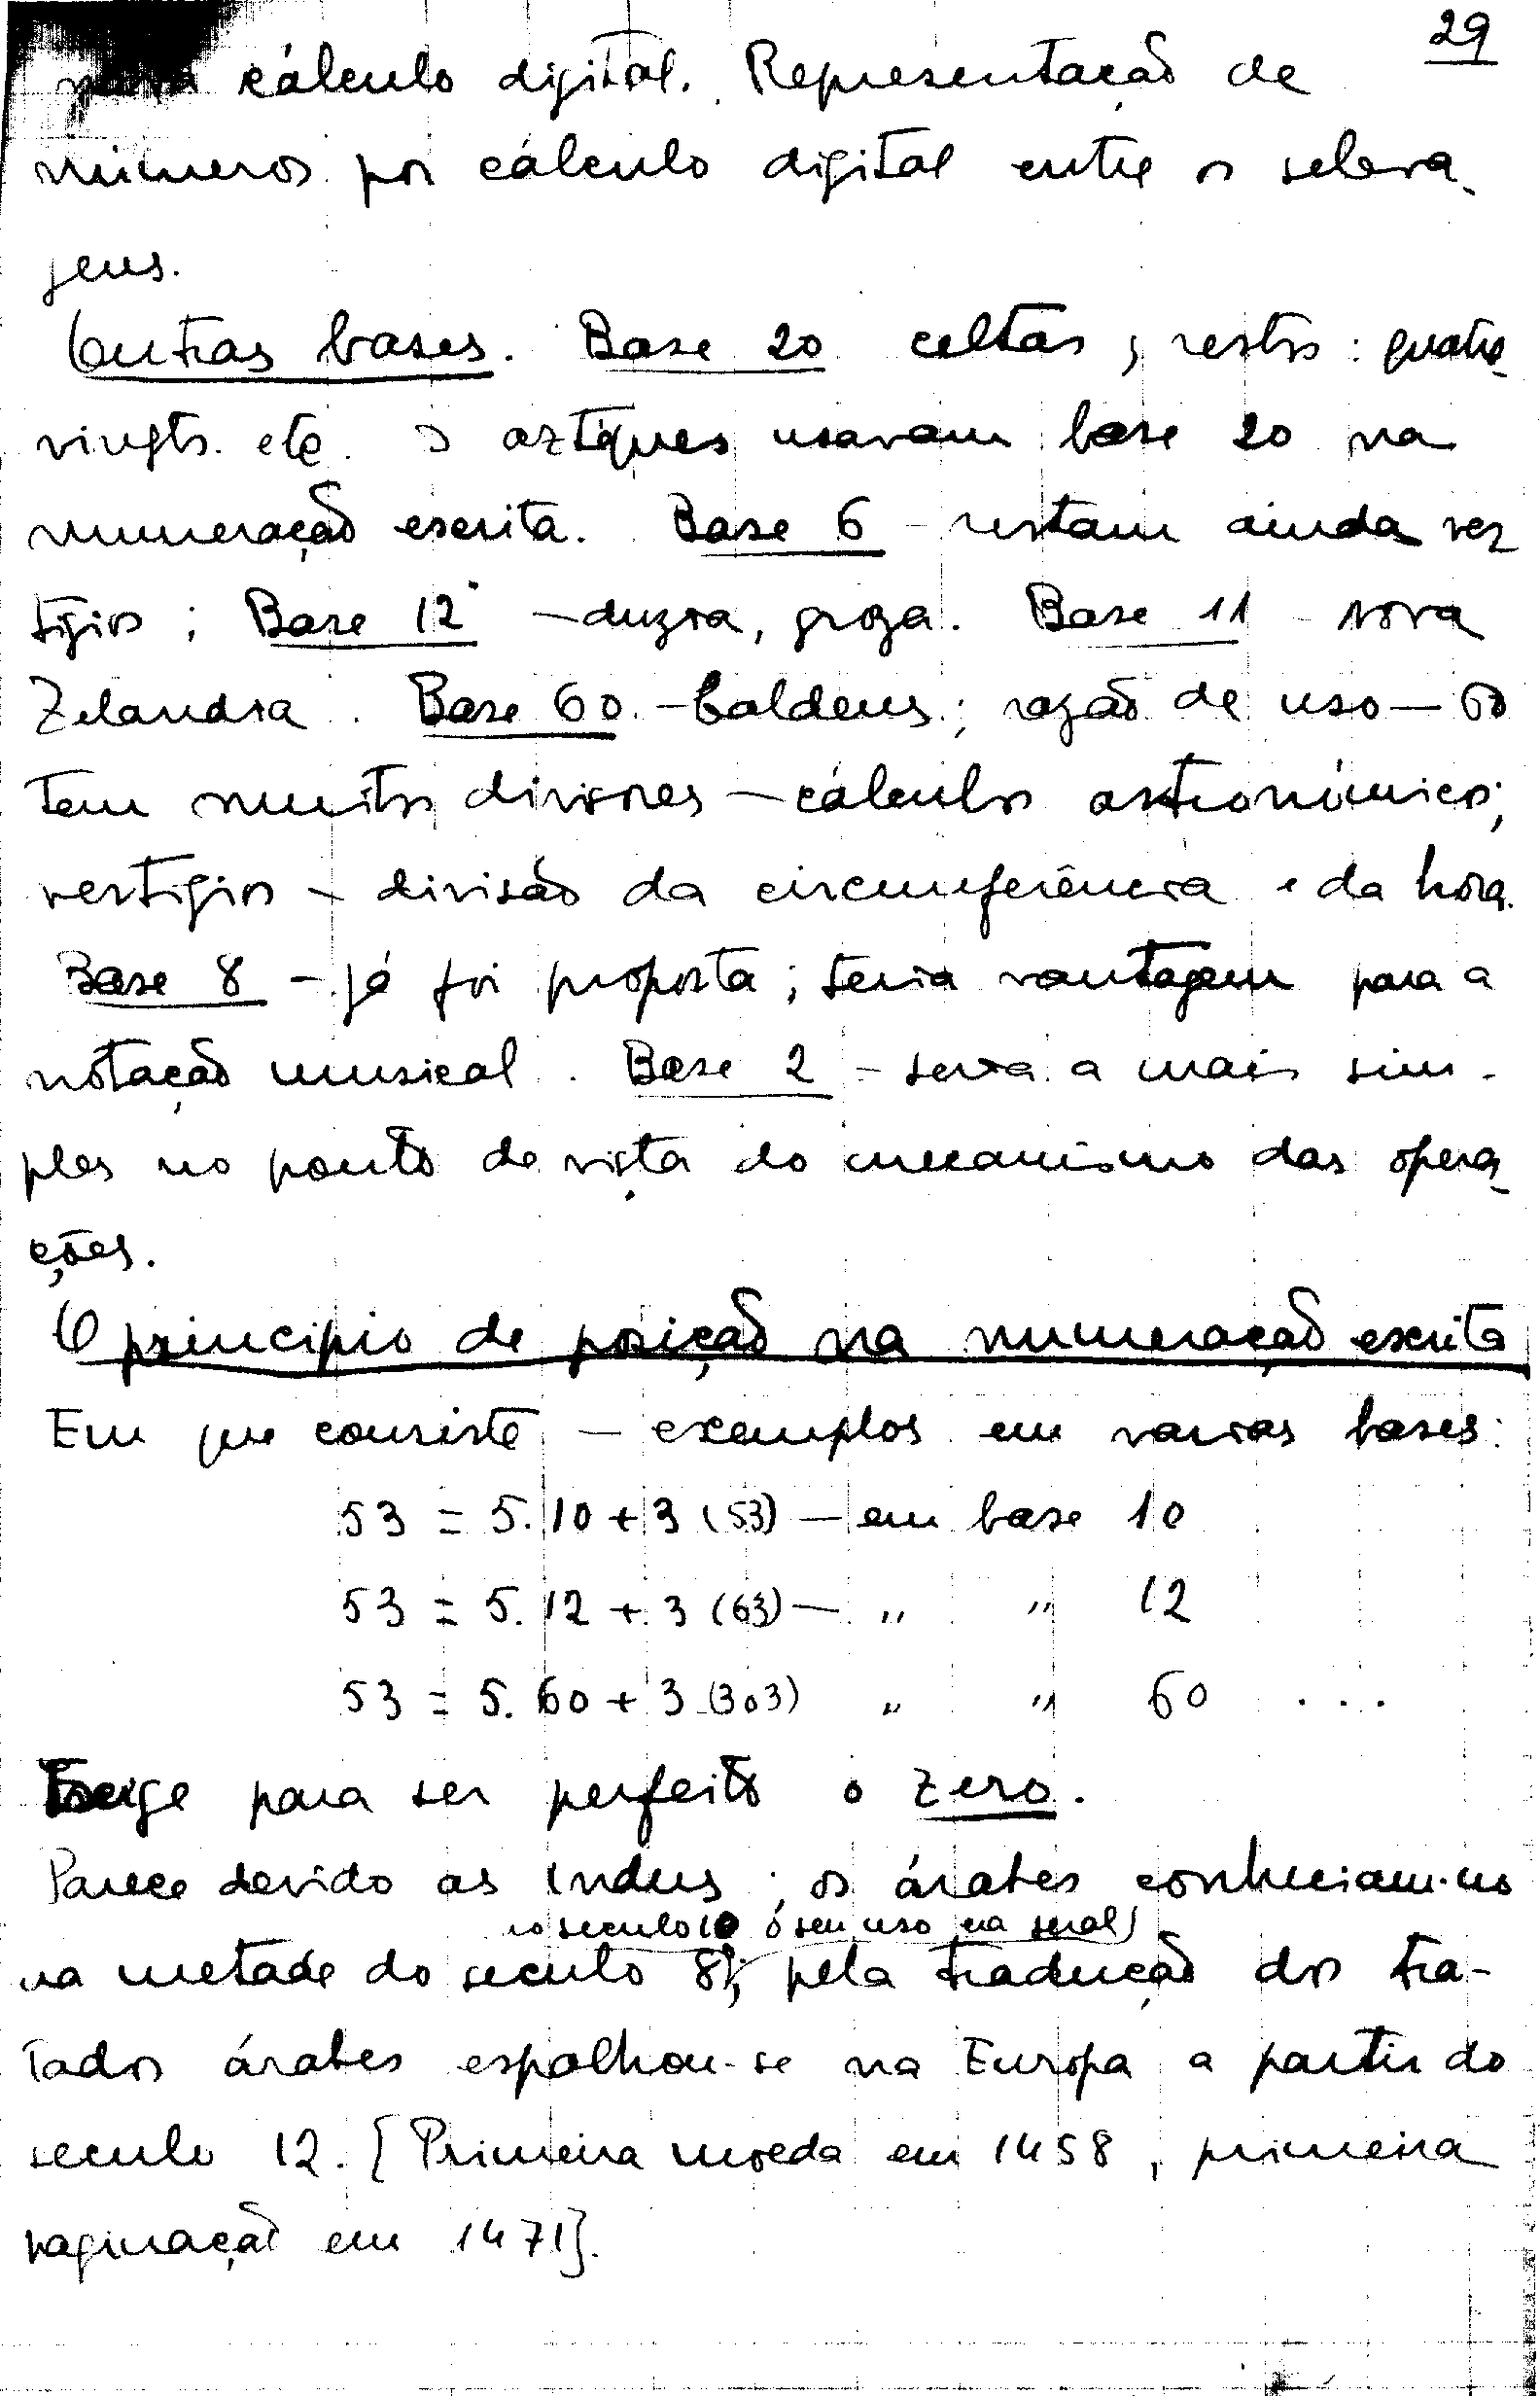 29
para cálculo digital. Representação de
números por cálculo digital entre os selva-
gens.
Outras bases. Base 20 celtas; restos: quatre-
vingts. etc. Os aztéques usavam base 20 na
numeração escrita. Base 6 - restam ainda ves
tígios; Base 12 - duzia, groza. Base 11 - Nova
Zelandia. Base 60 - Caldeus; razão de uso - 60
tem muitos divisores - cálculos astronómicos;
vestígios - divisão da circunferência e da hora.
Base 8 - já foi proposta; teria vantagem para a
notação musical. Base 2 - seria a mais sim-
ples no ponto de vista do mecanismo das opera-
ções.
O principio de posição na numeração escrita
Em que consiste - exemplos em varias bases:
53 = 5.10 + 3 (53) — em base 10
53 = 5.12 + 3 (63) — " " 12
53 = 5.60 + 3 (303) " " 60 ...
Exige para ser perfeito o zero.
Parece devido aos Indus; os árabes conheciam-no
no seculo 10 o seu uso era geral
na metade do seculo 8º; pela tradução dos tra-
tados árabes espalhou-se na Europa a partir do
seculo 12. [Primeira moeda em 1458, primeira
paginação em 1471].